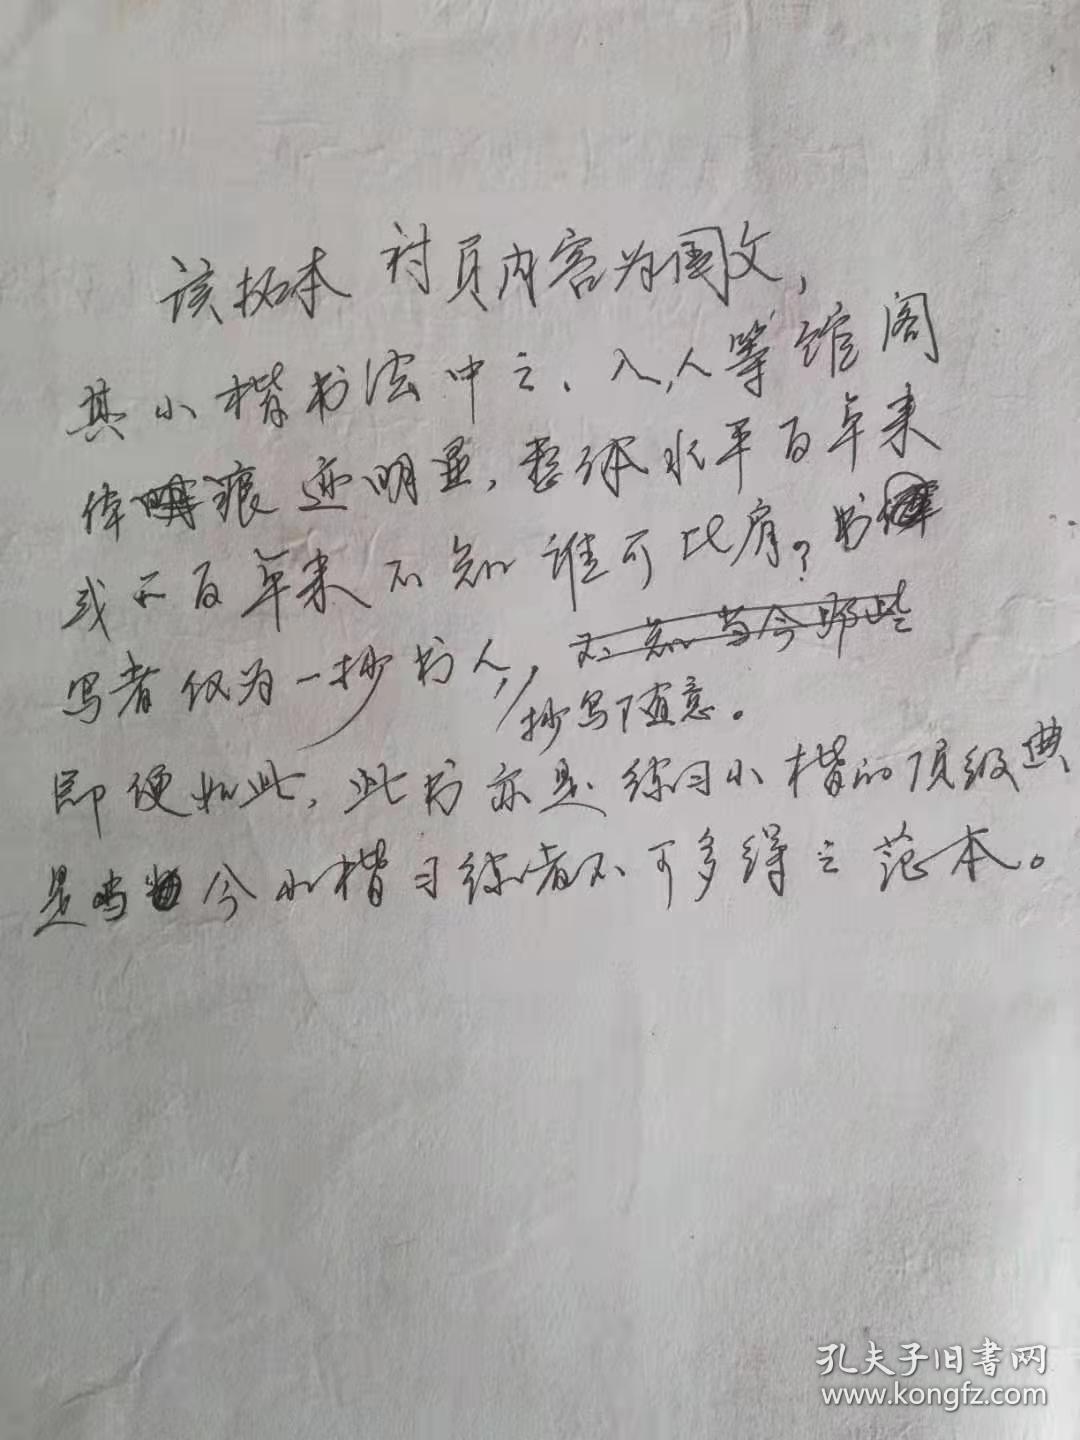 该拓本 衬页内容为围文，
其小楷书法中之、入人等馆阁
体痕迹明显，整体水平百年来
或不百年来不知谁可比肩？书
写者仅为一抄书人，不知当今那些
抄写随意。
即便如此，此书亦是练习小楷的顶级典
是当今小楷习练者不可多得之范本。
孔夫子旧書网
www.kongfz.com